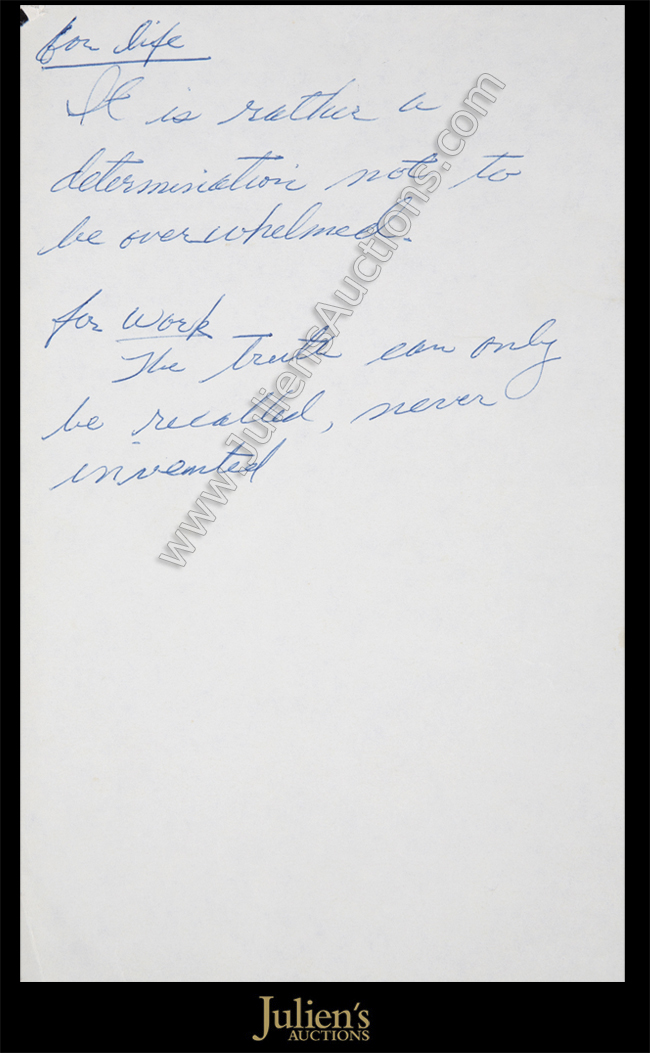 for life
It is rather a
determination not to
be overwhelmed.
for work
The truth can only
be recalled, never
invented
www.JuliensAuctions.com
Julien's
AUCTIONS